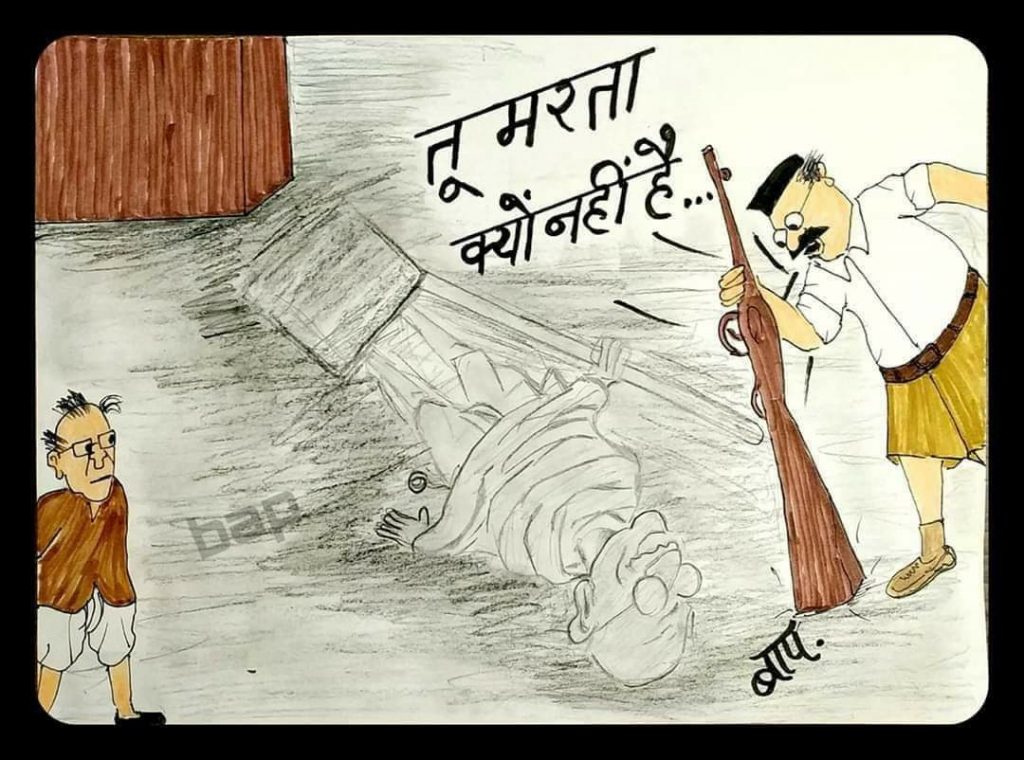 तू मरता
क्यों नहीं है...
bap
बाप.